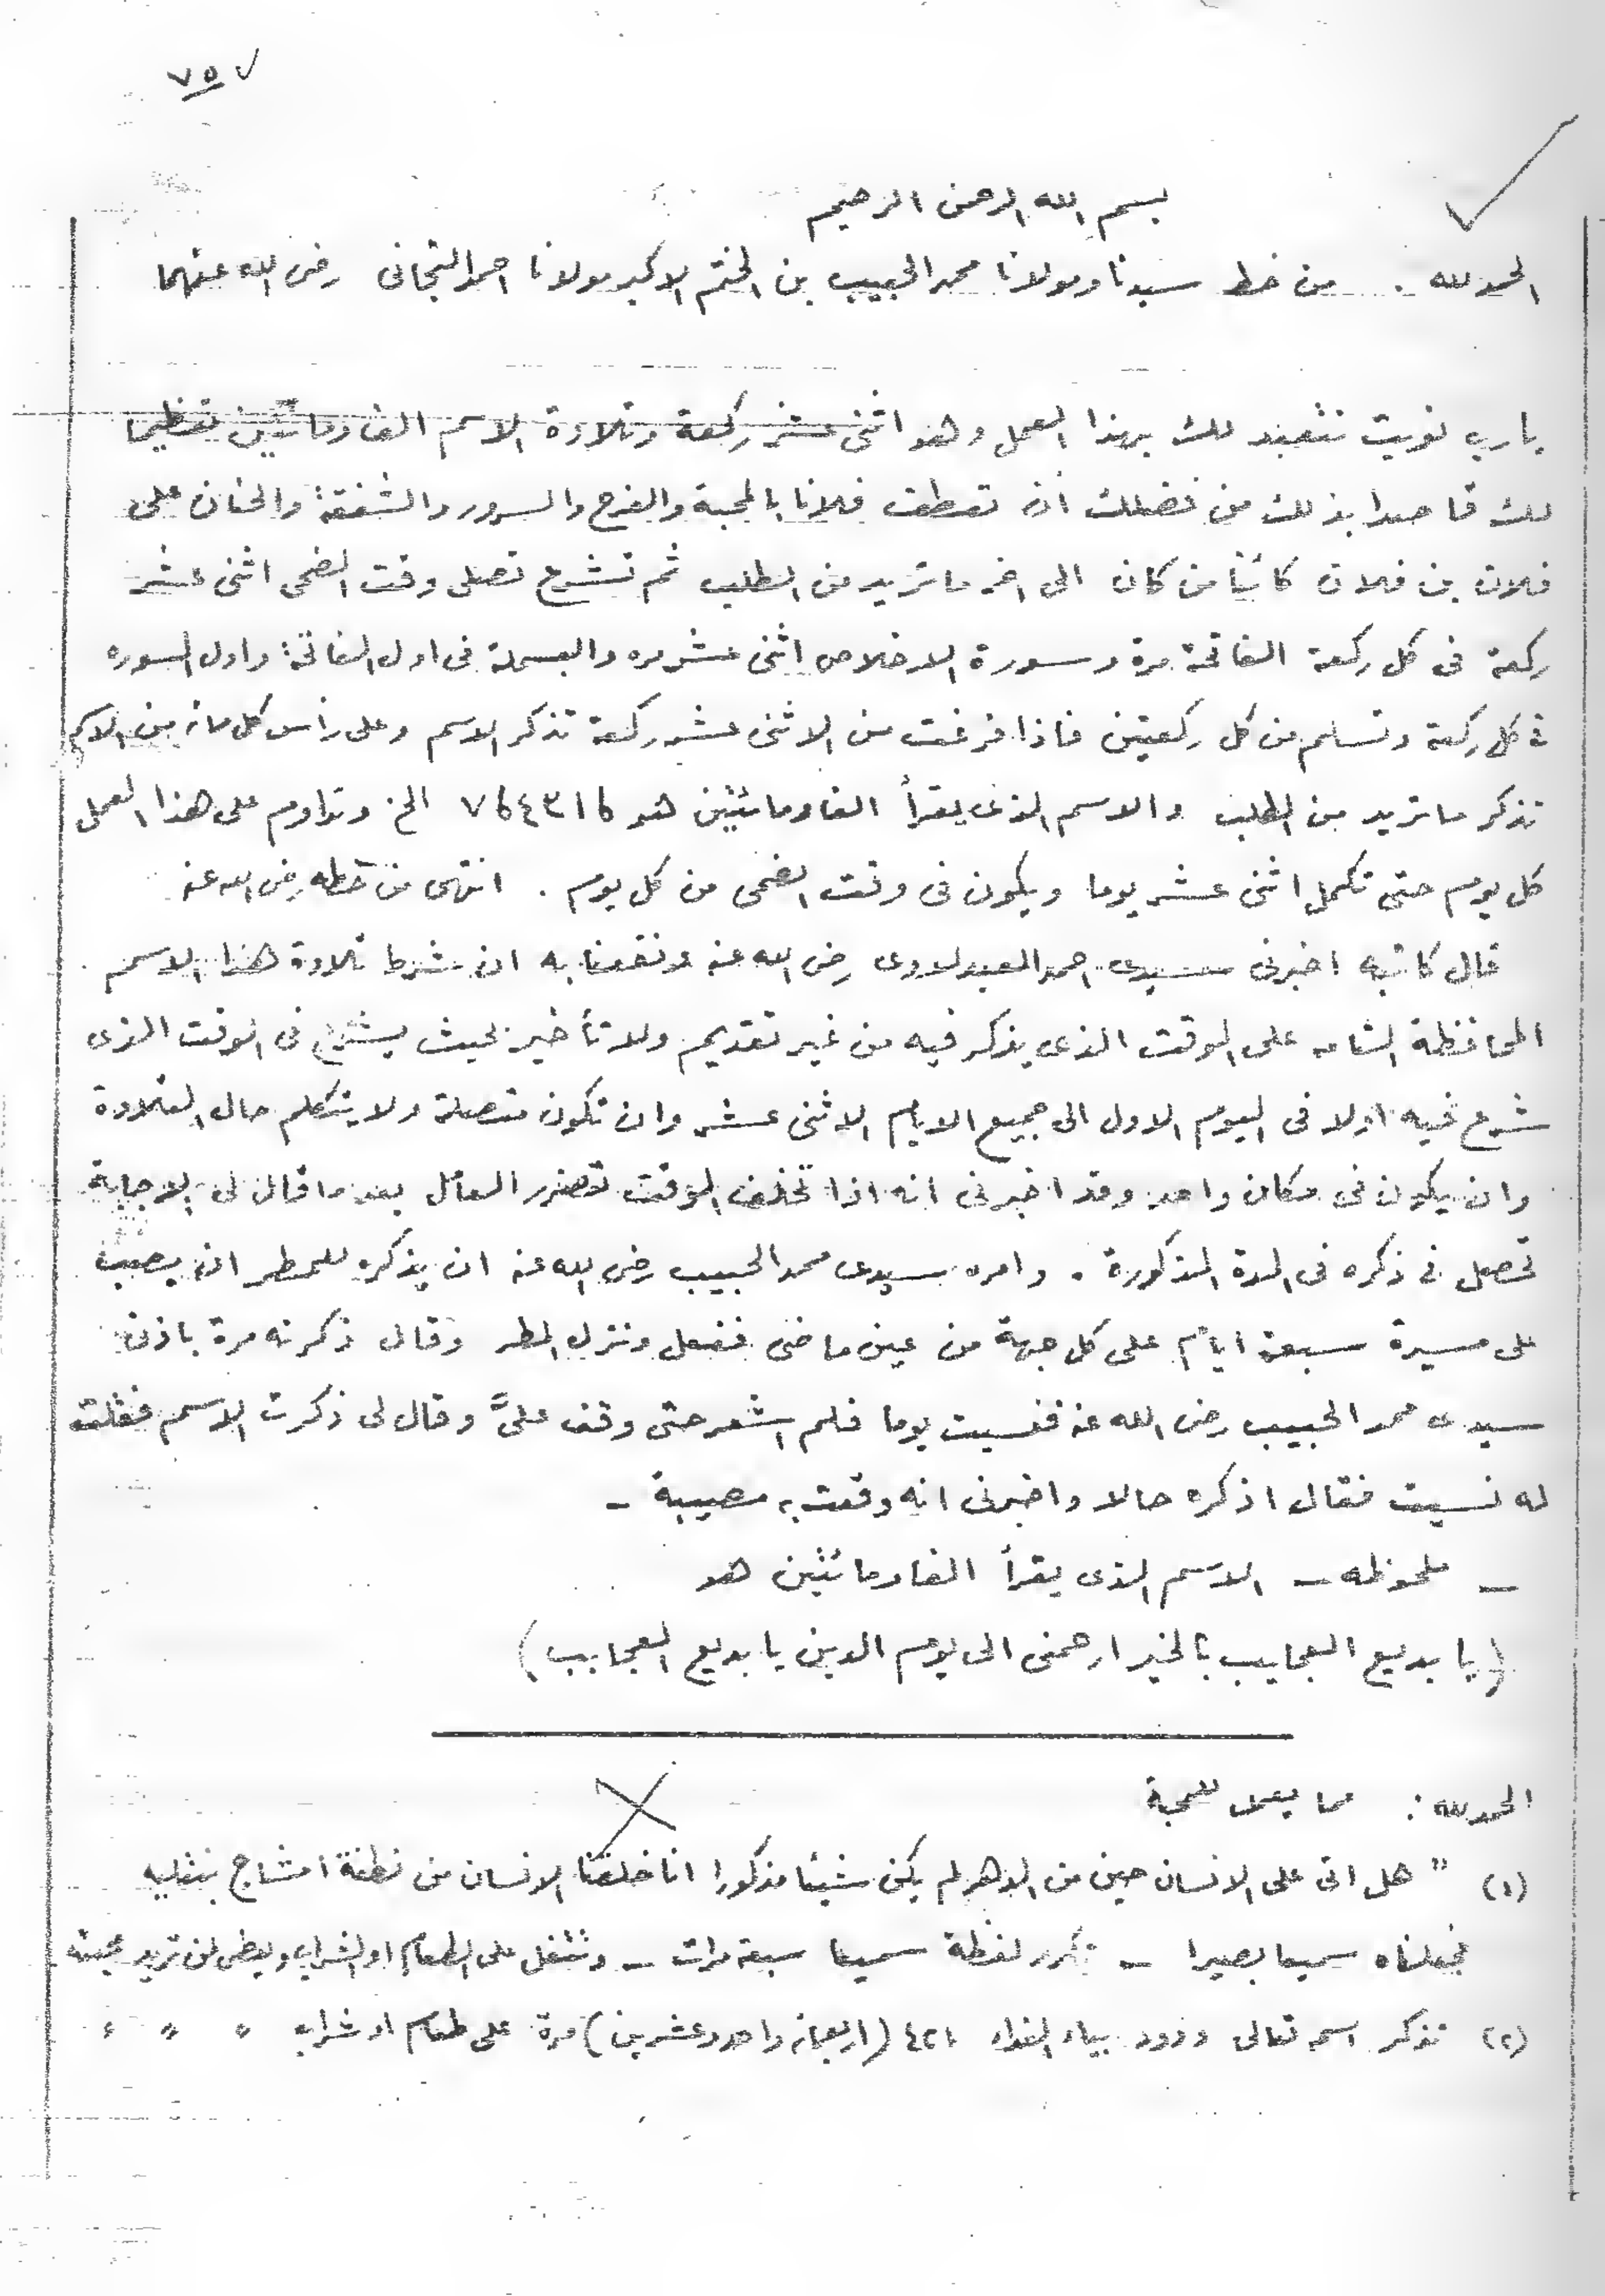 ٧٥٧
بسم الله الرحمن الرحيم
الحمد لله . من خط سيدنا ومولانا محمد الحبيب بن الختم الاكبر مولانا احمد التجانى رضى الله عنهما
يارب نويت نتعبد لك بهذا العمل وهو اثنى عشر ركعة وتلاوة الاسم الفا ومائتين تعظيما
لك قاصدا بذلك من فضلك أن تعطف فلانا بالمحبة والفرح والسرور والشفقة والحنان على
فلان بن فلان كائنا من كان الى اخر ما تريد من الطلب ثم تشرع تصلى وقت الضحى اثنى عشر
ركعة فى كل ركعة الفاتحة مرة وسورة الاخلاص اثنى عشر مره والبسملة فى اول الفاتحة واول السوره
فى كل ركعة وتسلم من كل ركعتين فاذا فرغت من الاثنى عشر ركعة تذكر الاسم وعلى رأس كل مائة من الاسم
تذكر ما تريد من الطلب والاسم الذى يقرأ الفا ومائتين هو الخ وتداوم على هذا العمل
كل يوم حتى تكمل اثنى عشر يوما ويكون فى وقت الضحى من كل يوم . انتهى من خطه رضى الله عنه
قال كاتبه اخبرنى سيدى احمد العبدلاوى رضى الله عنه ونفعنا به ان شرط تلاوة هذا الاسم
المحافظة التامه على الوقت الذى يذكر فيه من غير تقديم ولا تأخير بحيث يشرع فى الوقت الذى
شرع فيه اولا فى اليوم الاول الى جميع الايام الاثنى عشر وان تكون متصلة ولا يتكلم حال التلاوة
وان يكون فى مكان واحد وقد اخبرنى انه اذا تخلف الوقت تضرر العامل بعد ما قال لى الاجابة
تحصل فى ذكره فى المدة المذكورة . وامره سيدى محمد الحبيب رضى الله عنه ان يذكره للمطر ان يصب
على مسيرة سبعة ايام على كل جهة من عين ماضى ففعل ونزل المطر وقال ذكرته مرة باذن
سيدى محمد الحبيب رضى الله عنه فنسيت يوما فلم اشعر حتى وقف علىَّ وقال لى ذكرت الاسم فقلت
له نسيت فقال اذكره حالا واخبرنى انه وقعت به مصيبة -
- ملحوظه - الاسم الذى يقرأ الفا ومائتين هو
(يا بديع العجايب بالخير ارحمنى الى يوم الدين يا بديع العجايب)
الحمد لله : مما يعمل للمحبة
(١) " هل اتى على الانسان حين من الدهر لم يكن شيئا مذكورا انا خلقنا الانسان من نطفة امشاج نبتليه
فجعلناه سميعا بصيرا - تكرر لفظة سميعا سبعة مرات - وتتفل على الطعام او الشراب ويعطى لمن تريد محبته
(٢) تذكر اسمه تعالى ودود بياء النداء ٤٢١ (اربعمائة واحد وعشرين) مرة على طعام او شراب " " "